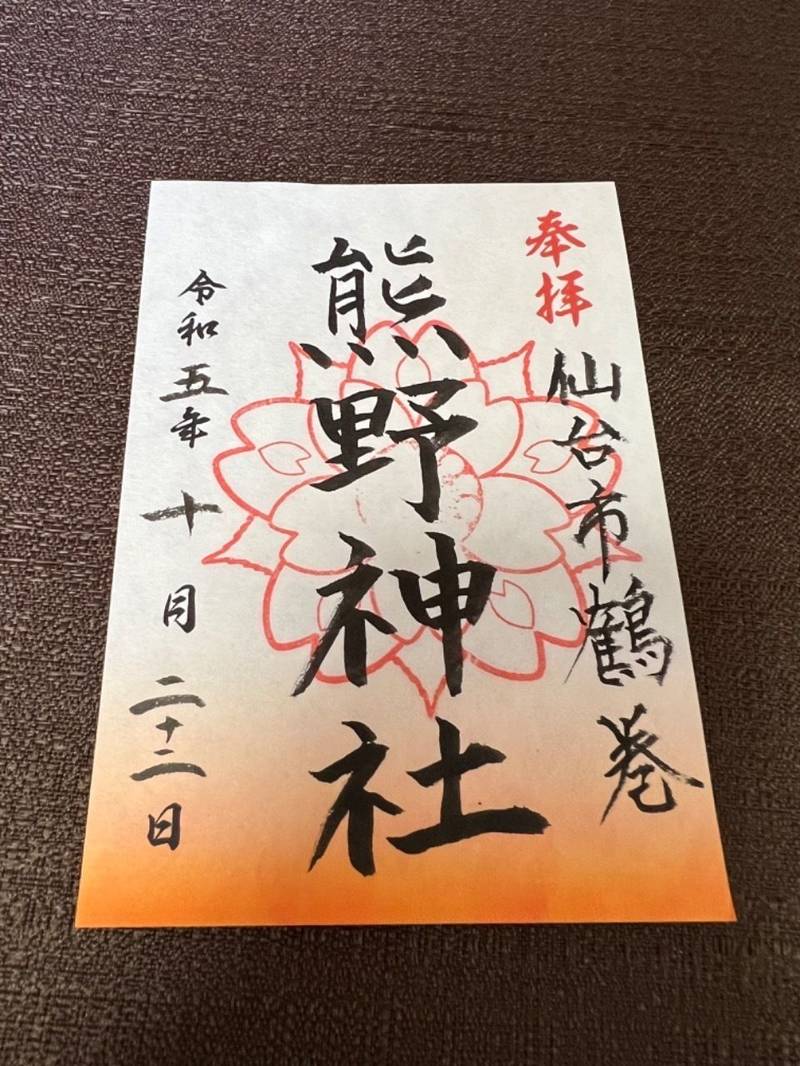 奉拝
仙台市鶴巻
熊野神社
令和五年十月二十二日